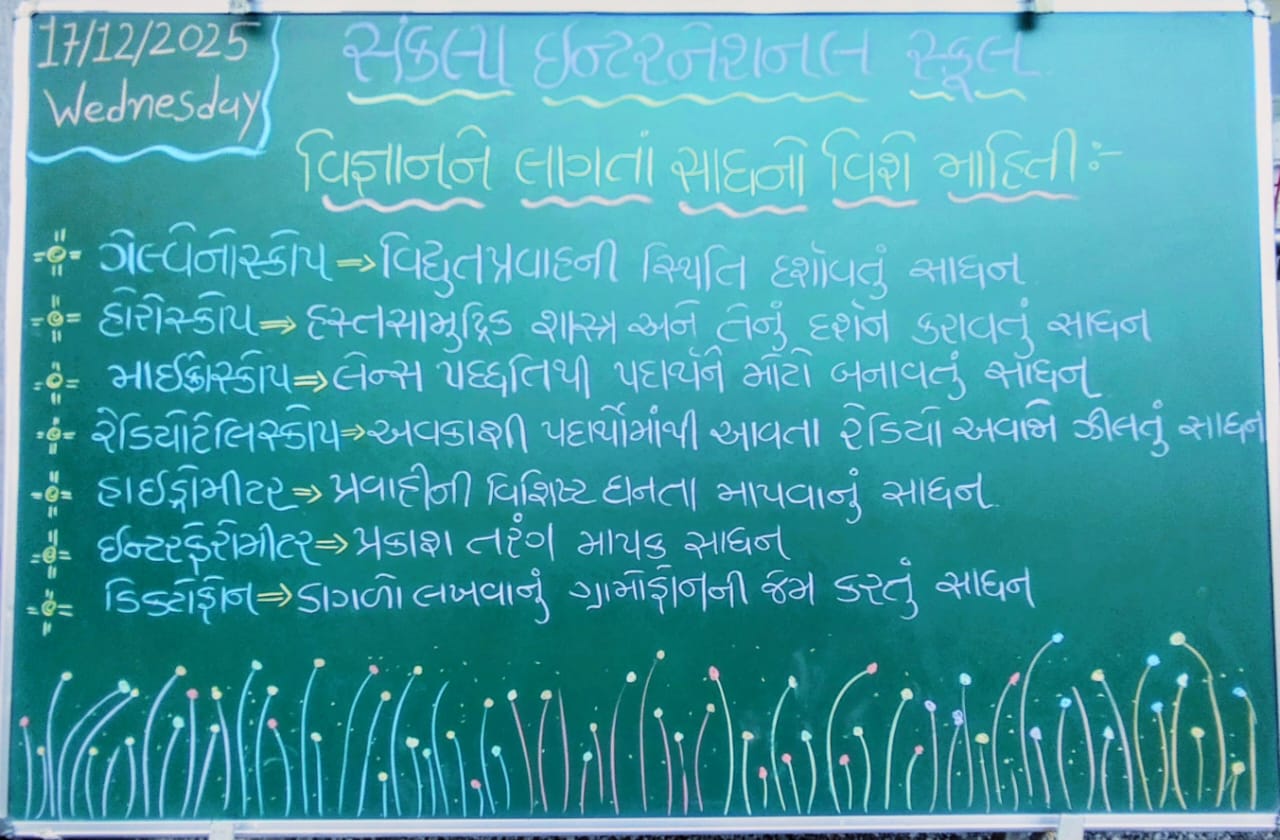 17/12/2025
Wednesday
સંકલ્પ ઇન્ટરનેશનલ સ્કૂલ
વિજ્ઞાનને લાગતાં સાધનો વિશે માહિતી:-
ગેલ્વેનોસ્કોપ => વિદ્યુતપ્રવાહની સ્થિતિ દર્શાવતું સાધન
હોરોસ્કોપ => હસ્તસામુદ્રિક શાસ્ત્ર અને તેનું દર્શન કરાવતું સાધન
માઈક્રોસ્કોપ => લેન્સ પદ્ધતિથી પદાર્થને મોટો બનાવતું સાધન
રેડિયોટેલિસ્કોપ => અવકાશી પદાર્થોમાંથી આવતા રેડિયો અવાજો ઝીલતું સાધન
હાઈડ્રોમીટર => પ્રવાહીની વિશિષ્ટ ઘનતા માપવાનું સાધન
ઇન્ટરફેરોમીટર => પ્રકાશ તરંગ માપક સાધન
ડિક્ટોફોન => કાગળો લખવાનું ગ્રામોફોનની જેમ કરતું સાધન